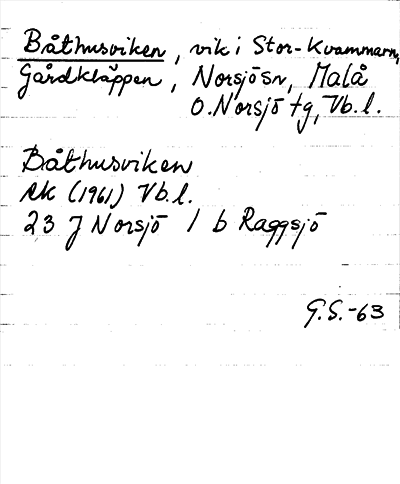 Båthusviken, vik i Stor-Kvammarn,
Gårdkläppen, Norsjö sn, Malå
o. Norsjö tg, Vb. l.
Båthusviken
RK (1961) Vb. l.
23 J Norsjö / b Raggsjö
G.S.-63